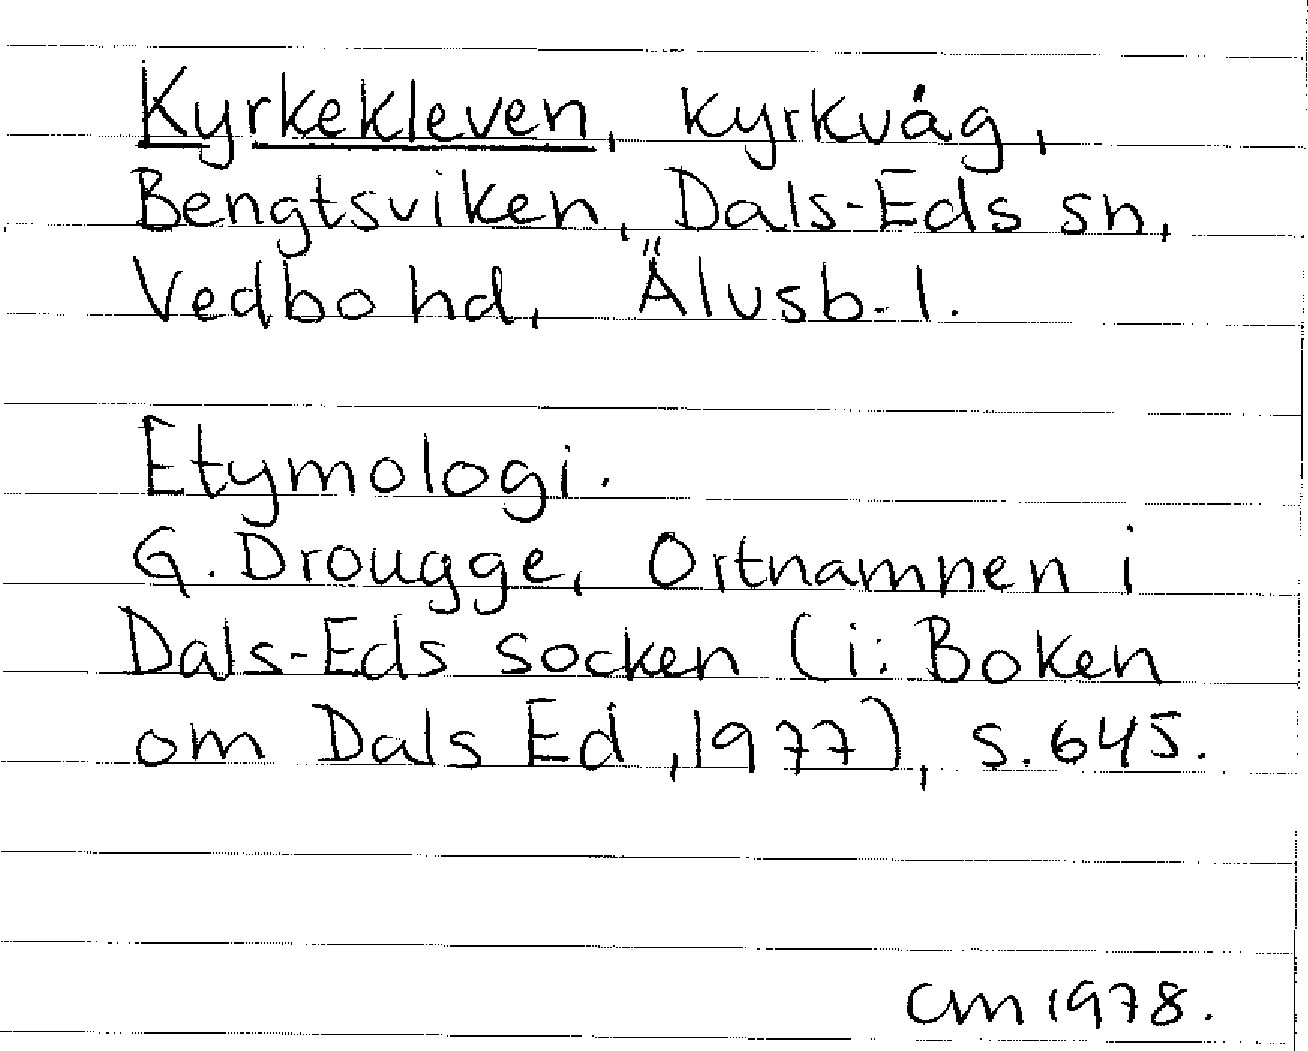 Kyrkekleven, kyrkväg,
Bengtsviken, Dals-Eds sn,
Vedbo hd, Älvsb. l.
Etymologi.
G. Drougge, Ortnamnen i
Dals-Eds socken (i: Boken
om Dals Ed, 1977), s. 645.
CM 1978.